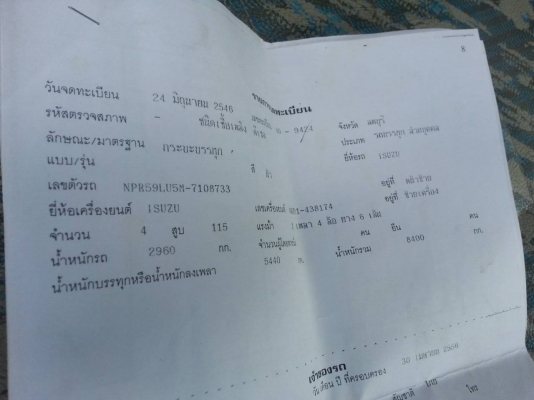 8
รายการจดทะเบียน
วันจดทะเบียน 24 มิถุนายน 2546 - 9424 จังหวัด
รหัสตรวจสภาพ - ชนิดเชื้อเพลิง ประเภท รถบรรทุก ส่วนบุคคล
ลักษณะ/มาตรฐาน กระบะบรรทุก ยี่ห้อรถ ISUZU
แบบ/รุ่น สี ฟ้า
เลขตัวรถ NPR59LU5M-7108733 อยู่ที่
ยี่ห้อเครื่องยนต์ ISUZU เลขเครื่องยนต์ -438174 อยู่ที่ ซ้ายเครื่อง
จำนวน 4 สูบ 115 แรงม้า 2 เพลา 4 ล้อ ยาง 6 เส้น
น้ำหนักรถ 2960 กก. จำนวนผู้โดยสาร คน ยืน คน
น้ำหนักบรรทุกหรือน้ำหนักลงเพลา 5440 กก. น้ำหนักรวม 8400 กก.
เจ้าของรถ
วัน เดือน ปี ที่ครอบครอง 30 เมษายน
สัญชาติ ไทย